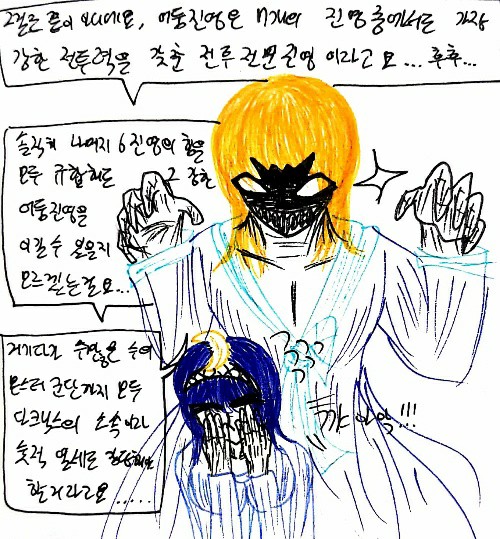 그걸로 끝이 아니에요, 어둠진영은 7개의 진영중에서도 가장
강한 전투력을 갖춘 전투전문진영 이라고요... 후후...
솔직히 나머지 6진영의 힘을
모두 규합해도 그 강한
어둠진영을
이길수 있을지
모르겠는걸요...
거기다가 수많은 수의
몬스터 군단까지 모두
다크닉스의 소속이라
숫적 열세로 감당해야
할거라고요.....
고고고
꺄아악!!!